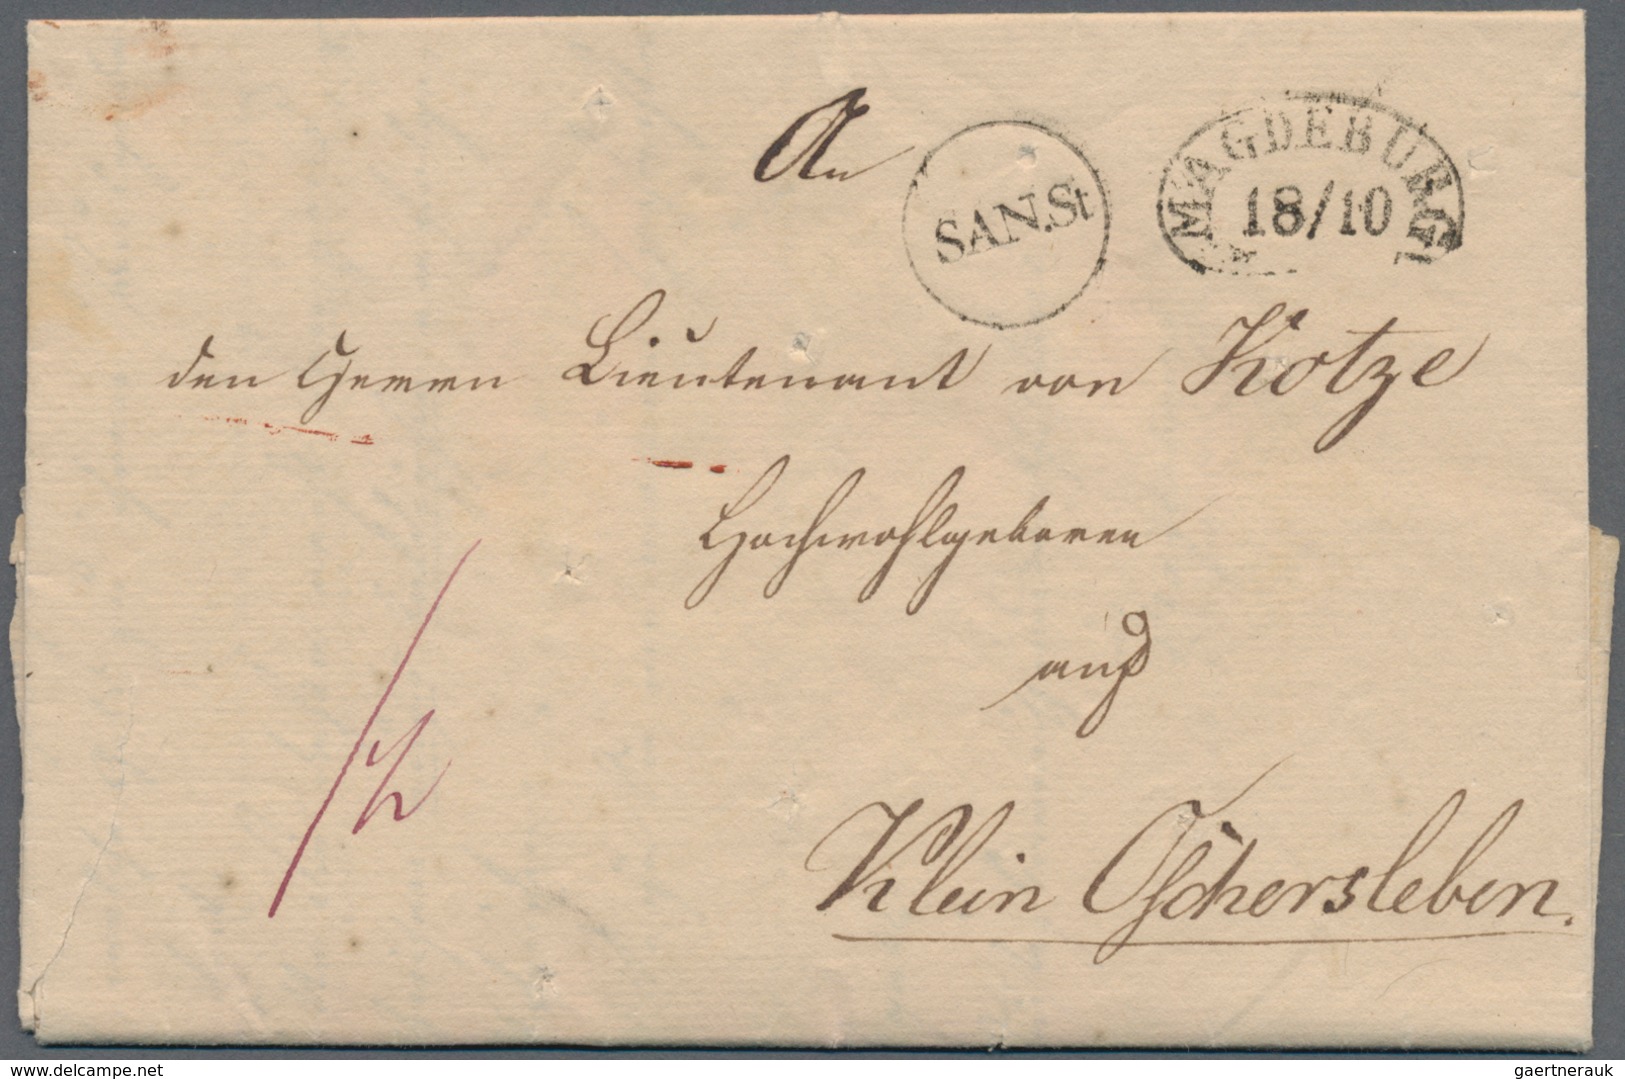 An
SAN.St
MAGDEBURG
18/10
den Herrn Lieutenant von Kotze
Hochwohlgeboren
auf
Klein Oschersleben.
delcampe.net
gaertnerauk